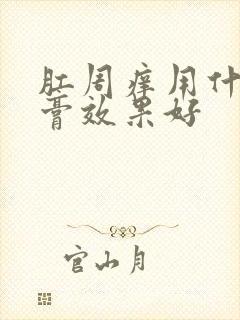 肛周痒用什
膏效果好
官山月